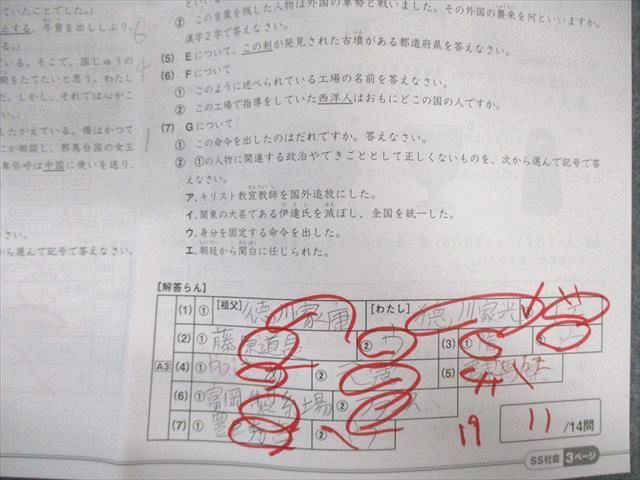 ていたことでした。」
止する。年貢を出ししぶり、
る。」
いる。そこで、国じゅうの
殿をたてたいと思う。わたし
だ。しかし、それでは心がこ
い。」
したがえている。倭はかつて
こが相談し、邪馬台国の女王
卑弥呼は中国に使いを送り、
さい。
ら選んで記号で答えなさい。
② この言葉を残した人物は外国の軍勢と戦いました。その外国の襲来を何といいますか。
漢字2字で答えなさい。
(5) Eについて、この剣が発見された古墳がある都道府県を答えなさい。
(6) Fについて
① このように述べられている工場の名前を答えなさい。
② この工場で指導をしていた西洋人はおもにどこの国の人ですか。
(7) Gについて
① この命令を出したのはだれですか。答えなさい。
② ①の人物に関連する政治やできごととして正しくないものを、次から選んで記号で答
えなさい。
ア.キリスト教宣教師を国外追放にした。
イ.関東の大名である伊達氏を滅ぼし、全国を統一した。
ウ.身分を固定する命令を出した。
エ.朝廷から関白に任じられた。
[解答らん]
A3
(1) ① [祖父] 徳川家康 [わたし] 徳川家光 ②
(2) ① 藤原道長 ② ウ (3) ① ②
(4) ① ② 元寇 (5) 埼玉
(6) ① 富岡製糸場 ② フランス
(7) ① 豊臣秀吉 ②
19 11/14問
SS社会 3ページ